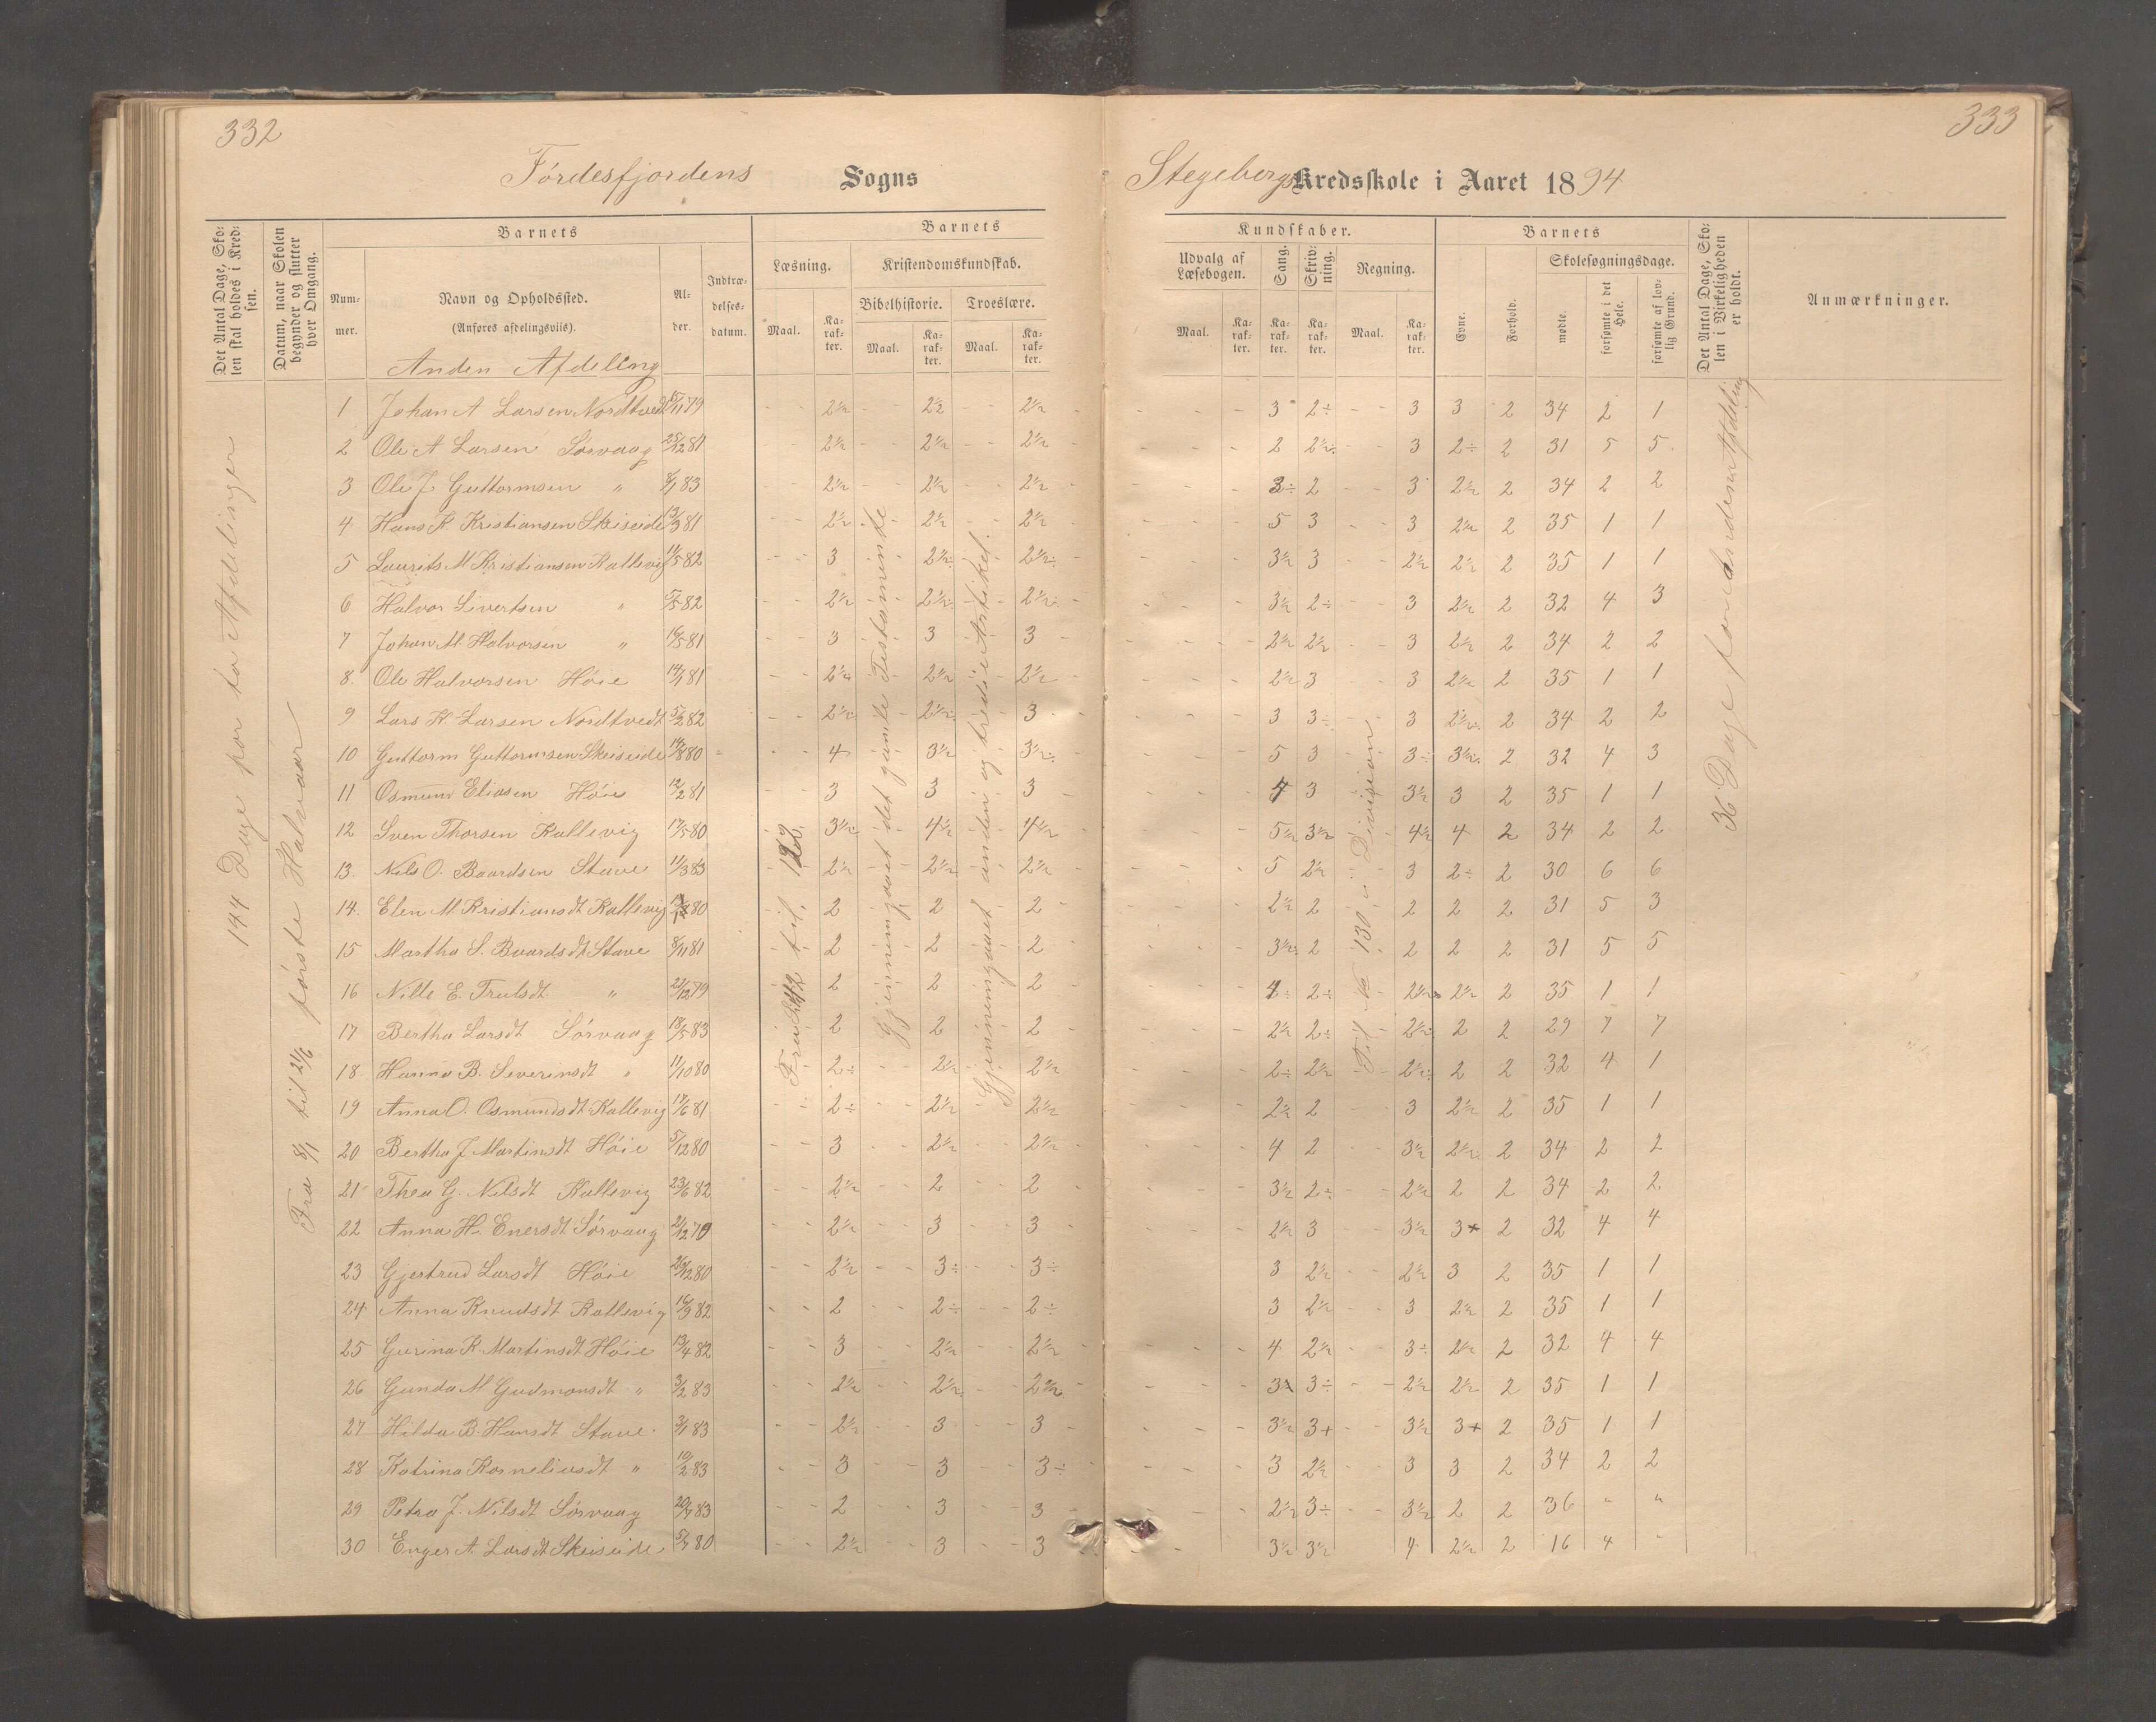 332
333
Førdesfjordens Sogns
Stegebergs Kredsskole i Aaret 1894
Det Antal Dage, Skolen skal holdes i Kredsen.
Datum, naar Skolen begynder og slutter hver Omgang.
Barnets
Nummer.
Navn og Opholdssted.
(Anføres afdelingsviis).
Alder.
Indtrædelsesdatum.
Barnets
Læsning.
Kristendomskundskab.
Bibelhistorie.
Troeslære.
Maal.
Karakter.
Maal.
Karakter.
Maal.
Karakter.
Kundskaber.
Udvalg af Læsebogen.
Sang.
Skrivning.
Regning.
Maal.
Karakter.
Karakter.
Karakter.
Maal.
Karakter.
Barnets
Evne.
Forhold.
Skolesøgningsdage.
mødte.
forsømte i det Hele.
forsømte af lovlig Grund.
Det Antal Dage, Skolen i Virkeligheden er holdt.
Anmærkninger.
144 Dage for to Afdelinger
Fra 8/1 til 21/6 første Halvaar
Fra 242 til 122
Gjennemgaaet det gamle Testamente
Gjennemgaaet anden og tredie Artikel
Til No 130 i Division
36 Dage for anden Afdeling
Anden Afdeling
1 Johan A Larsen Nordtvedt 79 2½ 2½ 2½ 3 2÷ 3 3 2 34 2 1
2 Ole A Larsen Sørvaag 25/12 81 2½ 2½ 2½ 2 2½÷ 3 2÷ 2 31 5 5
3 Ole J Guttormsen " 8/1 83 2½ 2½ 2½ 3÷ 2 3 2½ 2 34 2 2
4 Hans K Kristiansen Skeiseide 13/3 81 2½ 2½ 2½ 5 3 3 2½ 2 35 1 1
5 Laurits M Kristiansen Kallevig 11/5 82 3 2½ 2½÷ 3½ 3 2½ 2½ 2 35 1 1
6 Halvor Sivertsen " 82 2½ 2½ 2½ 3½ 2÷ 3 2½ 2 32 4 3
7 Johan M. Halvorsen " 16/5 81 3 3 3 2½ 2½ 3 2½ 2 34 2 2
8 Ole Halvorsen Høie 81 2½ 2½ 2½ 2½ 3 3 2½ 2 35 1 1
9 Lars K Larsen Nordtvedt 5/2 82 2½ 2½ 3 3 3÷ 3 2½ 2 34 2 2
10 Guttorm Guttormsen Skeiseide 80 4 3½ 3½ 5 3 3÷ 3½ 2 32 4 3
11 Osmund Eliasen Høie 12/2 81 3 3 3 4 3 3½ 3 2 35 1 1
12 Sven Thorsen Kallevig 17/5 80 3½ 4½ 4½ 5½ 3½ 4½ 4 2 34 2 2
13 Nils O. Baardsen Stave 11/3 83 2½ 2½ 2½ 5 2½ 3 2÷ 2 30 6 6
14 Elen M Kristiansdt Kallevig 80 2 2 2 2½ 2 2 2 2 31 5 3
15 Martha S. Baardsdt Stave 8/11 81 2 2 2 3½ 2 2 2 2 31 5 5
16 Nille E. Trulsdt " 21/12 79 2 2 2 4÷ 2÷ 2½ 2½ 2 35 1 1
17 Bertha Larsdt Sørvaag 18/5 83 2 2 2 2½ 2÷ 2½ 2 2 29 7 7
18 Hanna B. Severinsdt " 11/10 80 2÷ 2½ 2½ 2÷ 2½ 2½ 2 2 32 4 1
19 Anna O. Osmundsdt Kallevig 17/6 81 2÷ 2½ 2½ 2½ 2 3 2½ 2 35 1 1
20 Bertha J Martinsdt Høie 5/12 80 3 2½ 2½ 4 2 3½ 2½ 2 34 2 2
21 Thea G. Nilsdt Kallevig 23/6 82 2½ 2 2 3½ 2÷ 2½ 2 2 34 2 2
22 Anna H. Enersdt Sørvaag 2½ 3 3 2½ 3 3½ 3+ 2 32 4 4
23 Gjertrud Larsdt Høie 80 2½ 3÷ 3÷ 3 2½ 2½ 3 2 35 1 1
24 Anna Knudsdt Kallevig 16/9 82 2 2÷ 2÷ 3 2½ 3 2½ 2 35 1 1
25 Gurina K. Martinsdt Høie 13/4 82 3 2½ 2½ 4 2½ 3÷ 2½ 2 32 4 4
26 Gunda M Gudmonsdt " 3/2 83 2½ 2½ 2½ 3 3÷ 2½ 2½ 2 35 1 1
27 Hilda B. Hansdt Stave 3/1 83 2½ 3 3 3½ 3+ 3½ 3+ 2 35 1 1
28 Katrina Korneliusdt " 10/2 83 3 3 3÷ 3 2½ 3 3 2 34 2 2
29 Petra J. Nilsdt Sørvaag 83 2 3 3 2½ 3÷ 3½ 2 2 36 " "
30 Enger A. Larsdt Skeiseide 80 2½ 3 3 3½ 3½ 4 2½ 2 16 4 "